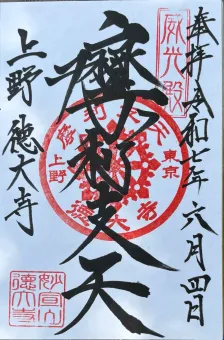 奉拝 令和七年六月四日
威光殿
摩利支天
摩利支天
東京
上野
徳大寺
上野 徳大寺
妙宣山
徳大寺